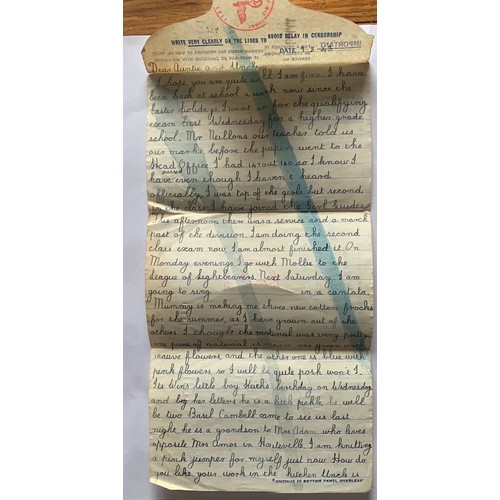 WRITE VERY CLEARLY ON THE LINES TO AVOID DELAY IN CENSORSHIP
IMPORTANT
DATE 9.5.43
Dear Auntie and Uncle
I hope you are quite well I am fine. I have
been back at school a week now since the
Easter holidays. I went in for the qualifying
exam last Wednesday for a higher grade
school. Mr Neillons our teacher told us
our marks before the papers went to the
Head Office I had out 160 so I know I
have passed even though I haven't heard
officially. I was top of the girls but second
in the class I have joined the Girl Guides
This afternoon there was a service and a march
past of the division. I am doing the second
class exam now, I am almost finished it. On
Monday evenings I go with Mollie to the
league of Lightbearers. Next Saturday I am
going to sing in a cantata.
Mummy is making me three new cotton frocks
for the summer, as I have grown out of the
others. I thought the material was very pretty
one piece of material is green with
mauve flowers, and the other one is blue with
pink flowers, so I will be quite posh won't I.
Its Wins little boy birthday on Wednesday
and by her letters he is a pickle, he will
be two. Basil Cambell came to see us last
night he is a grandson to Mrs Adam who lives
opposite Mrs Amos in I am knitting
a pink jumper for myself just now. How do
you like your work in the kitchen Uncle is
CONTINUE IN BOTTOM PANEL OVERLEAF